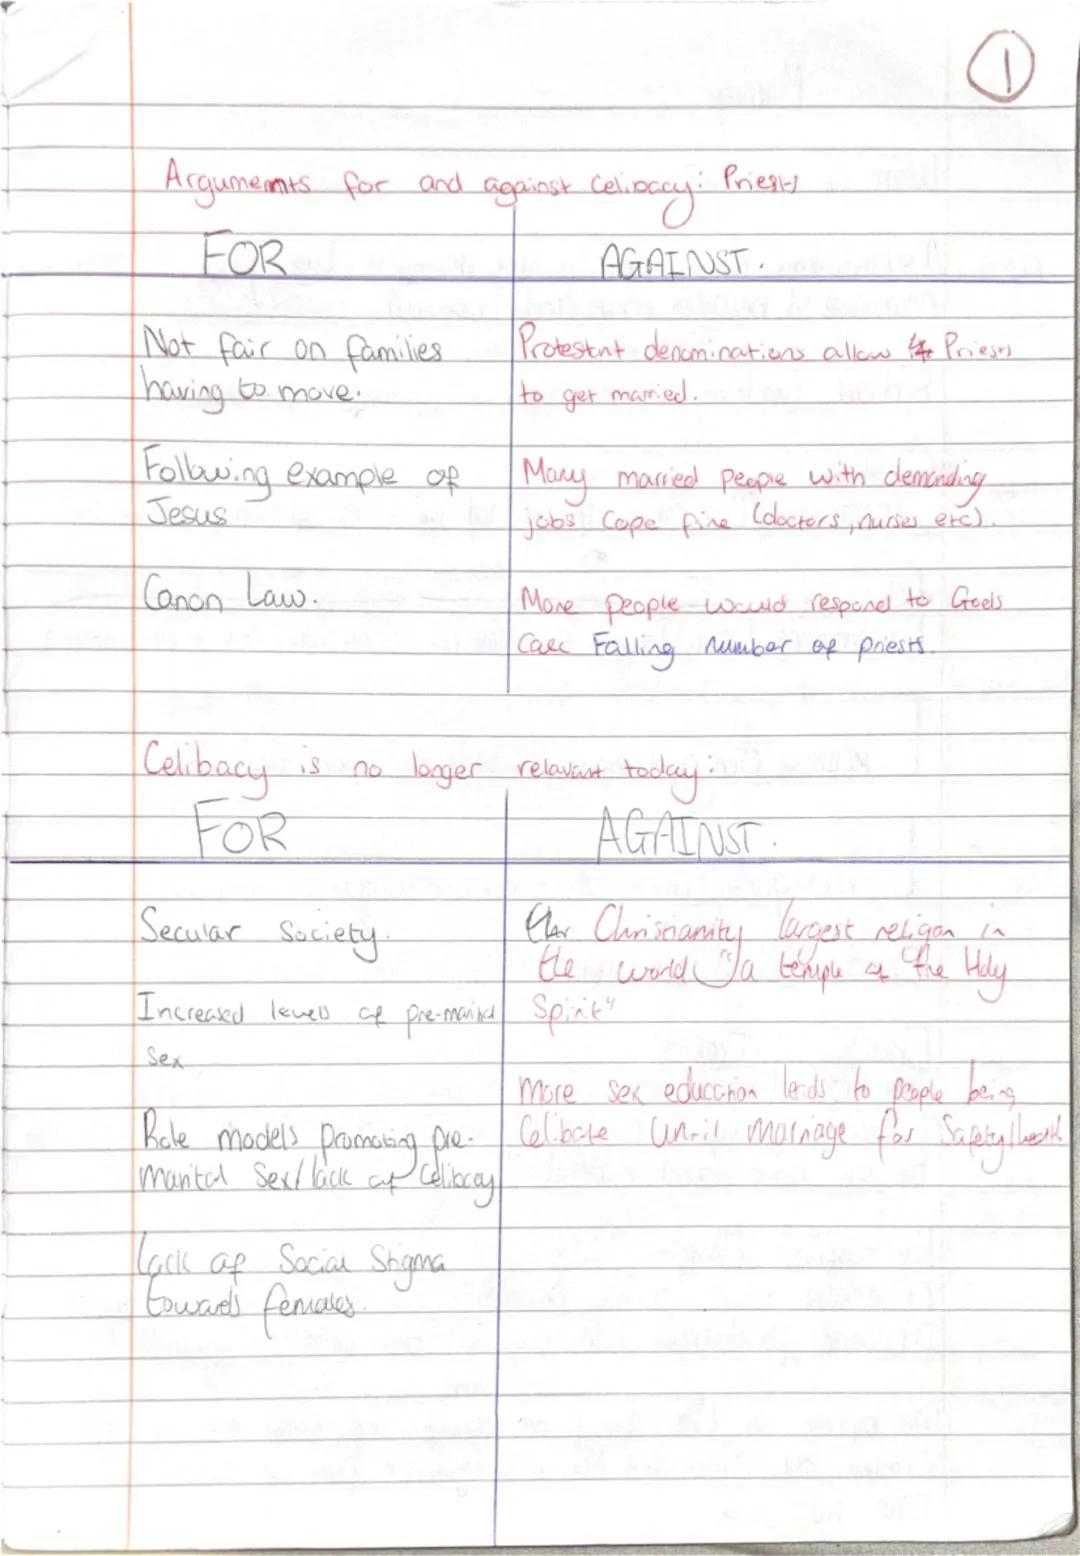 1
Arguments for and against Celibacy: Priests
FOR
AGAINST.
Not fair on families
having to move.
Following example of
Jesus
Canon Law.
Protestnt denominations allow Priests
to get married.
Many married people with demanding
jobs Cope fine (doctors, nurses etc).
More people would respond to Gods
Call Falling number of priests.
Celibacy is no longer relavant today:
FOR
AGAINST.
Secular Society.
Increased levels of pre-marital
Sex
Role models promoting pre-
marital Sex/lack of Celibacy
Lack of Social Stigma
towards females.
Christianity largest religon in
the world "a temple of the Holy
Spirit"
More sex education leads to people being
Celibate until marriage for Safety/health